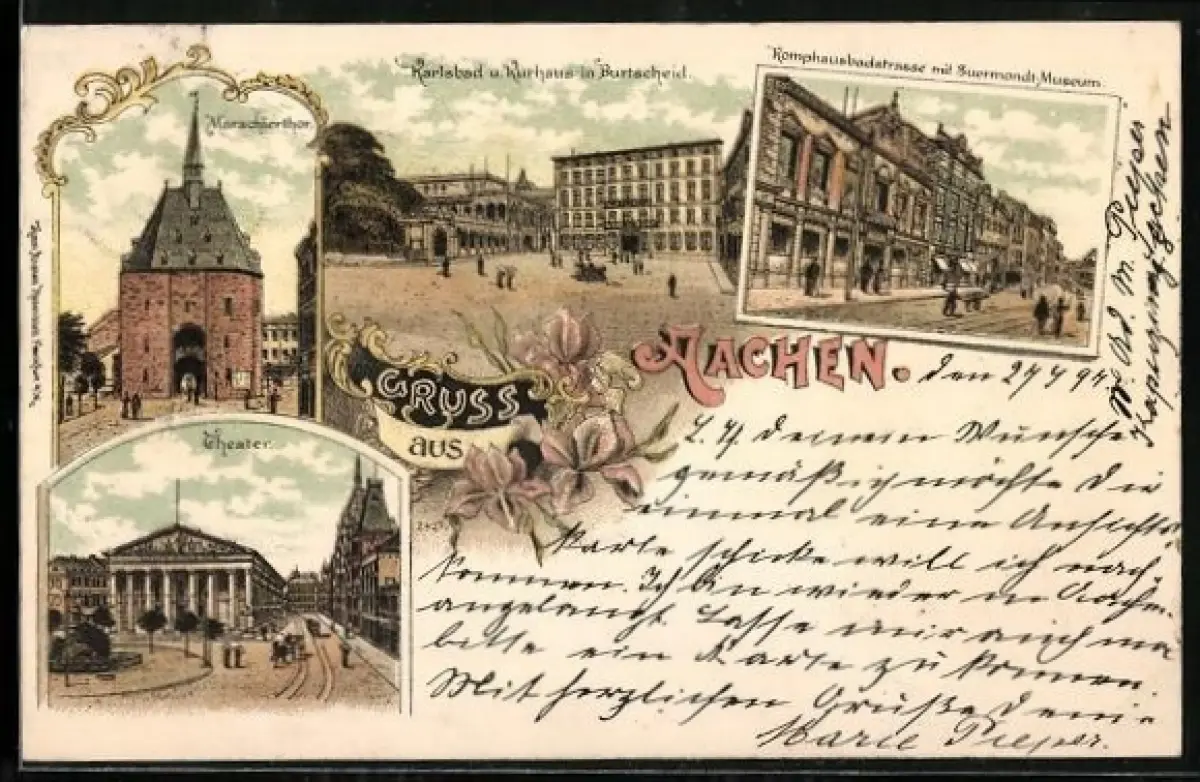 Marschierthor.
Karlsbad u. Kurhaus in Burtscheid.
Komphausbadstrasse mit Suermondt-Museum.
Theater.
GRUSS
aus
AACHEN.
den
L. deinem Wunsche
gemäß möchte Dir
einmal eine Ansichts
karte schicke will ich nach
kommen. Ich bin wieder in
angelangt Lasse mir auch ma
bitte ein Karte zu kommen.
Mit herzlichen Grüße
Marie
Ad. M.
Kapuzinergraben